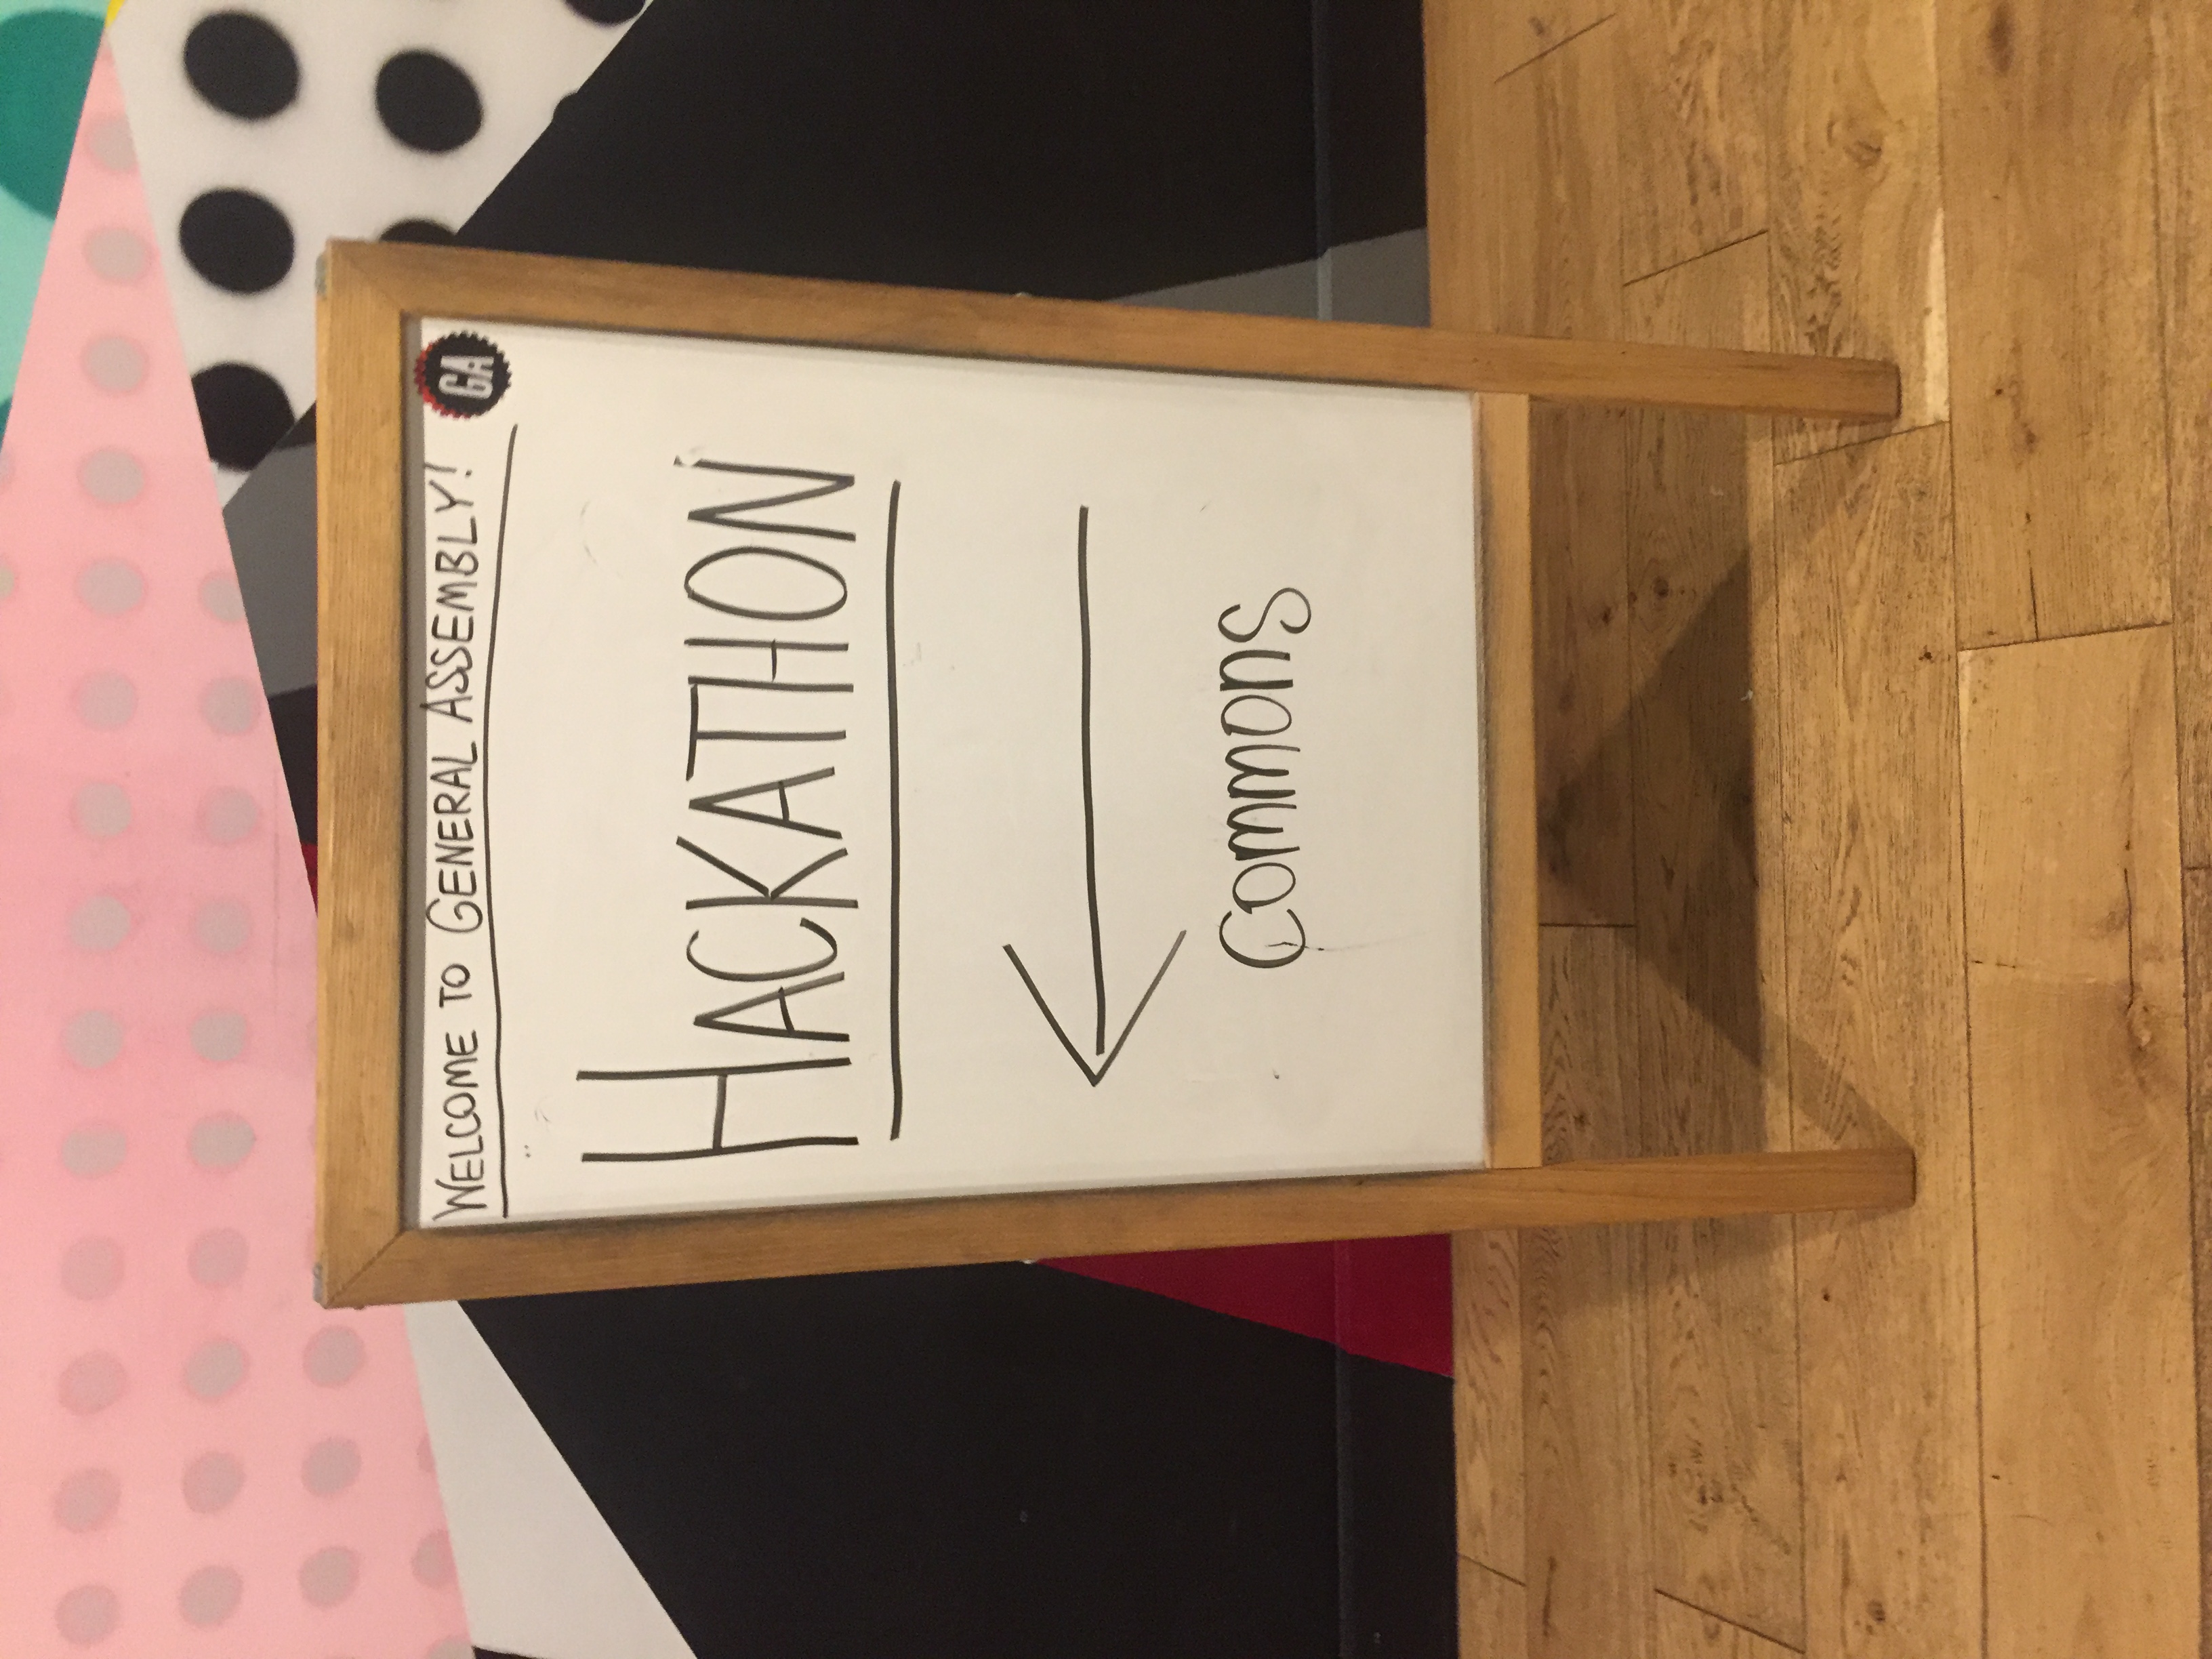 WELCOME TO GENERAL ASSEMBLY!
GA
HACKATHON
Commons